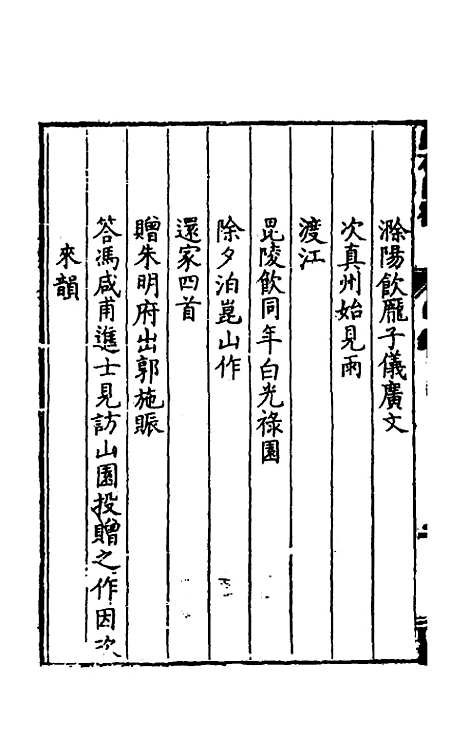 滁陽飲龎子儀廣文
次真州始見雨
渡江
毘陵飲同年白光祿園
除夕泊崑山作
還家四首
贈朱明府出郭施賑
答馮咸甫進士見訪山園投贈之作因次
來韻